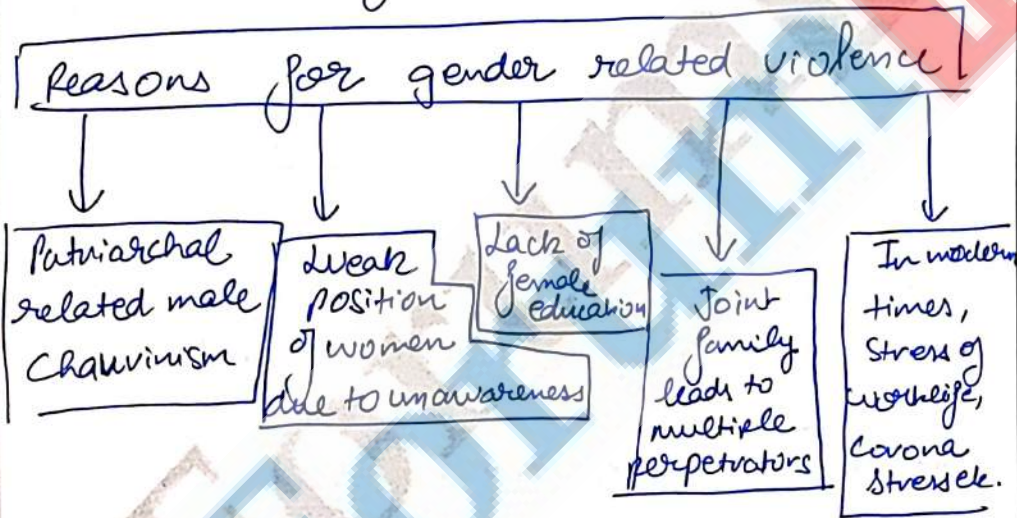 Reasons for gender related violence
Patriarchal
related male
Chauvinism
Weak
position
of women
due to unawareness
Lack of
female
education
Joint
family
leads to
multiple
perpetrators
In modern
times,
Stress of
worklife,
Corona
Stress etc.
Forum